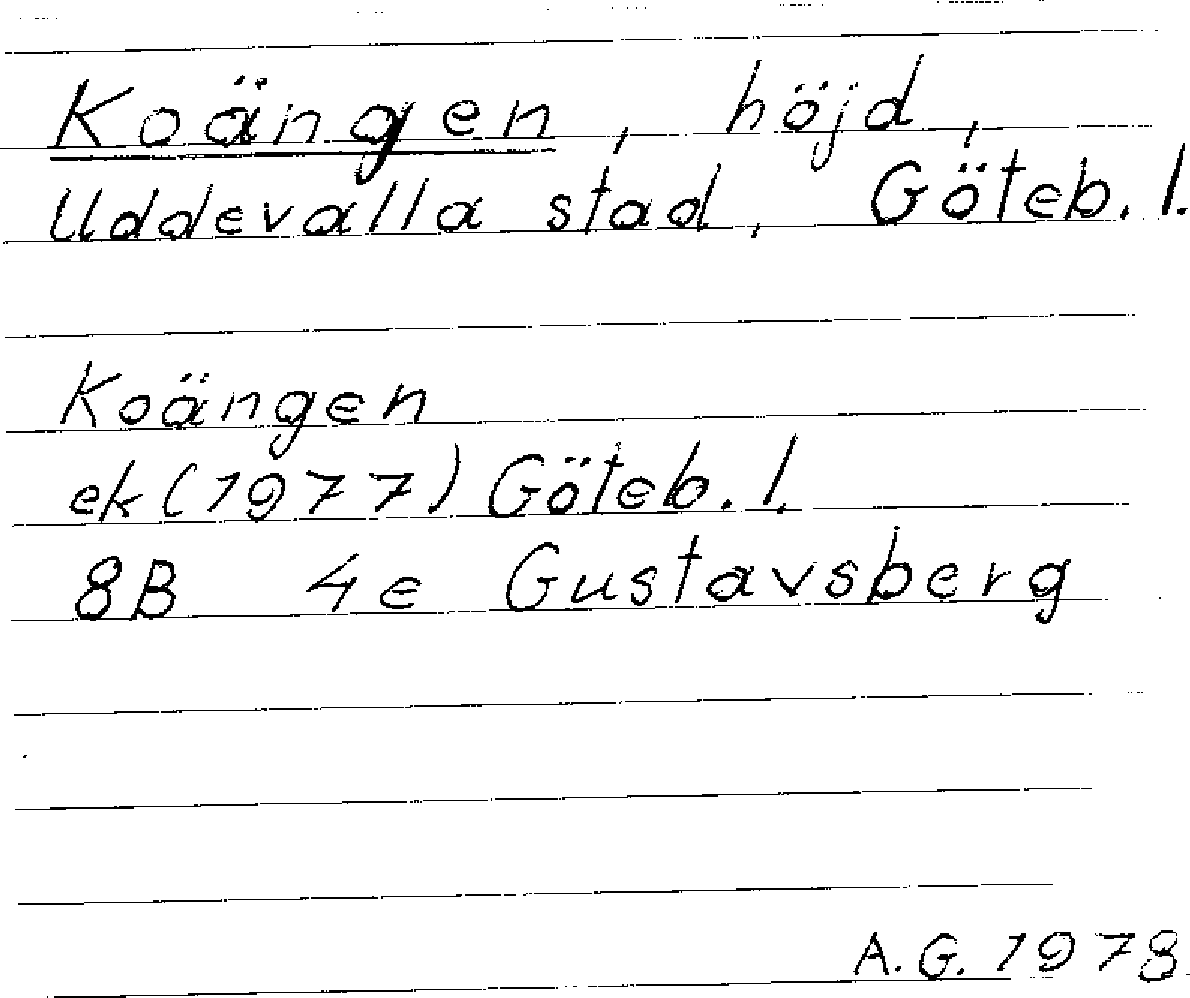 Koängen, höjd,
Uddevalla stad, Göteb. l.
Koängen
ek (1977) Göteb. l.
8B 4e Gustavsberg
A. G. 1978